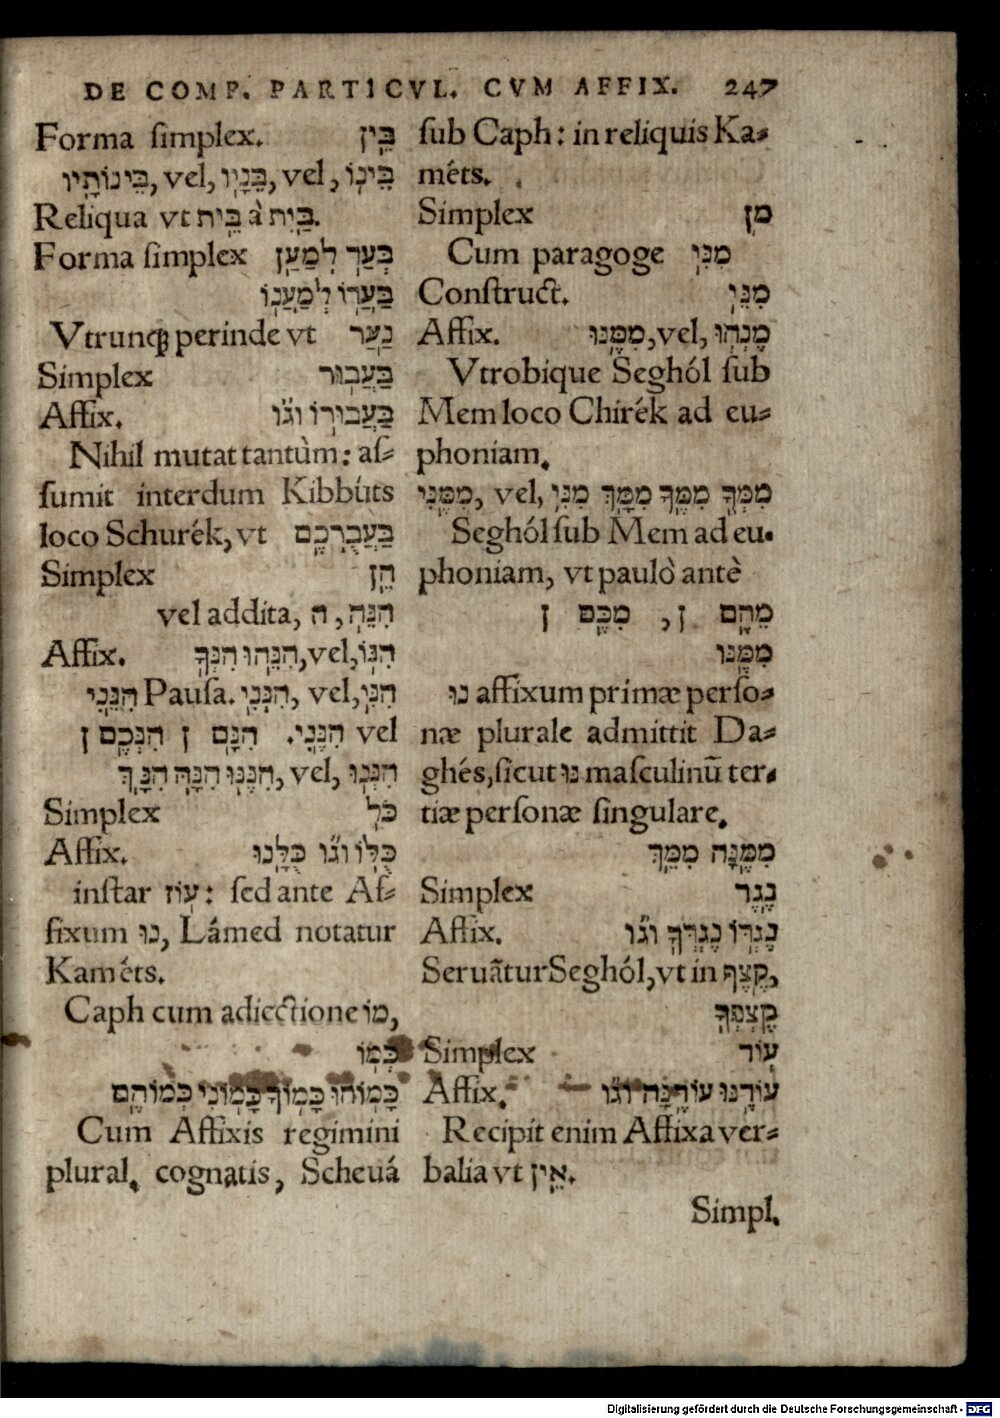 DE COMP. PARTICVL. CVM AFFIX. 247
Forma ſimplex. בֵּין
בֵּינוֹ, vel, בֵּנָיו, vel, בֵּינוֹתָיו
Reliqua vt בֵּית à בַּיִת.
Forma ſimplex בְּעַד לְמַעַן
בַּעֲדוֹ לְמַעֲנוֹ
Vtrunq; perinde vt נַעַר
Simplex בַּעֲבוּר
Affix. בַּעֲבוּרוֹ וגו֞
Nihil mutat tantùm: aſ-
ſumit interdum Kibbúts
loco Schurék, vt בַּעֲבֻרְכֶם
Simplex הֵן
vel addita, ה, הִנֵּה
Affix. הִנּוֹ, vel, הִנֵּהוּ הִנְּךָ
הִנִּי, vel, הִנְנִי. Pauſa הִנֵּנִי
vel הִנֶּנִּי. הִנָּם ן הִנְּכֶם ן
הִנְנוּ, vel, הִנֶּנּוּ הִנָּהּ הִנָּךְ
Simplex כֹּל
Affix. כֻּלּוֹ וגו֞ כֻּלָּנוּ
inſtar עֹז: ſed ante Af-
fixum נוּ, Lámed notatur
Kaméts.
Caph cum adiectione מוֹ,
כְּמוֹ
כָּמוֹהוּ כָּמוֹךָ כָּמוֹנִי כְּמוֹהֶם
Cum Affixis regimini
plural. cognatis, Scheuá
ſub Caph: in reliquis Ka-
méts.
Simplex מִן
Cum paragoge מִנִּי
Conſtruct. מִנֵּי
Affix. מֶנְהוּ, vel, מִמֶּנּוּ
Vtrobique Seghól ſub
Mem loco Chirék ad eu-
phoniam.
מִמְּךָ מִמֶּךָ מִמָּךְ מִנִּי, vel, מִמֶּנִּי
Seghól ſub Mem ad eu-
phoniam, vt paulò antè
מֵהֶם ן, מִכֶּם ן
מִמֶּנּוּ
נוּ affixum primæ perſo-
næ plurale admittit Da-
ghés, ſicut נוּ maſculinū ter-
tiæ perſonæ ſingulare.
מִמֶּנָּה מִמֵּךְ
Simplex נֶגֶד
Affix. נֶגְדּוֹ נֶגְדְּךָ וגו֞
Seruātur Seghól, vt in קֶצֶף,
קֶצְפְּךָ
Simplex עוֹד
Affix. עוֹדֶנּוּ עוֹדֶנָּה וגו֞
Recipit enim Affixa ver-
balia vt אֵין.
Simpl.
Digitalisierung gefördert durch die Deutsche Forschungsgemeinschaft - DFG